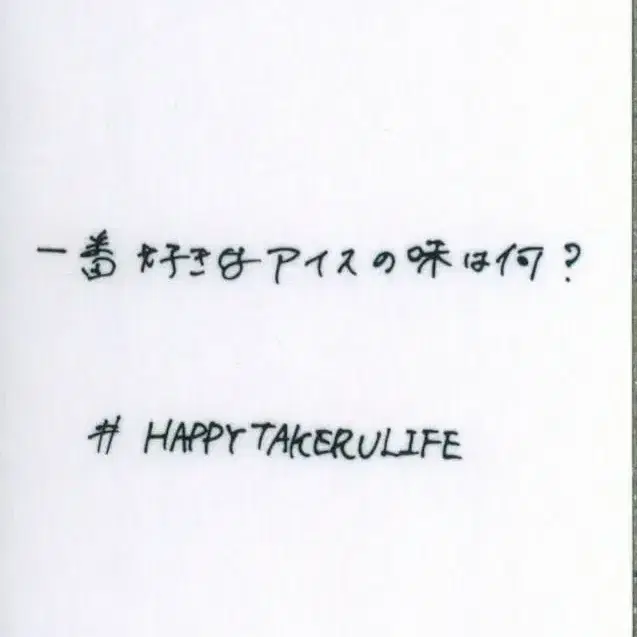 一番好きなアイスの味は何?
# HAPPYTAKERULIFE